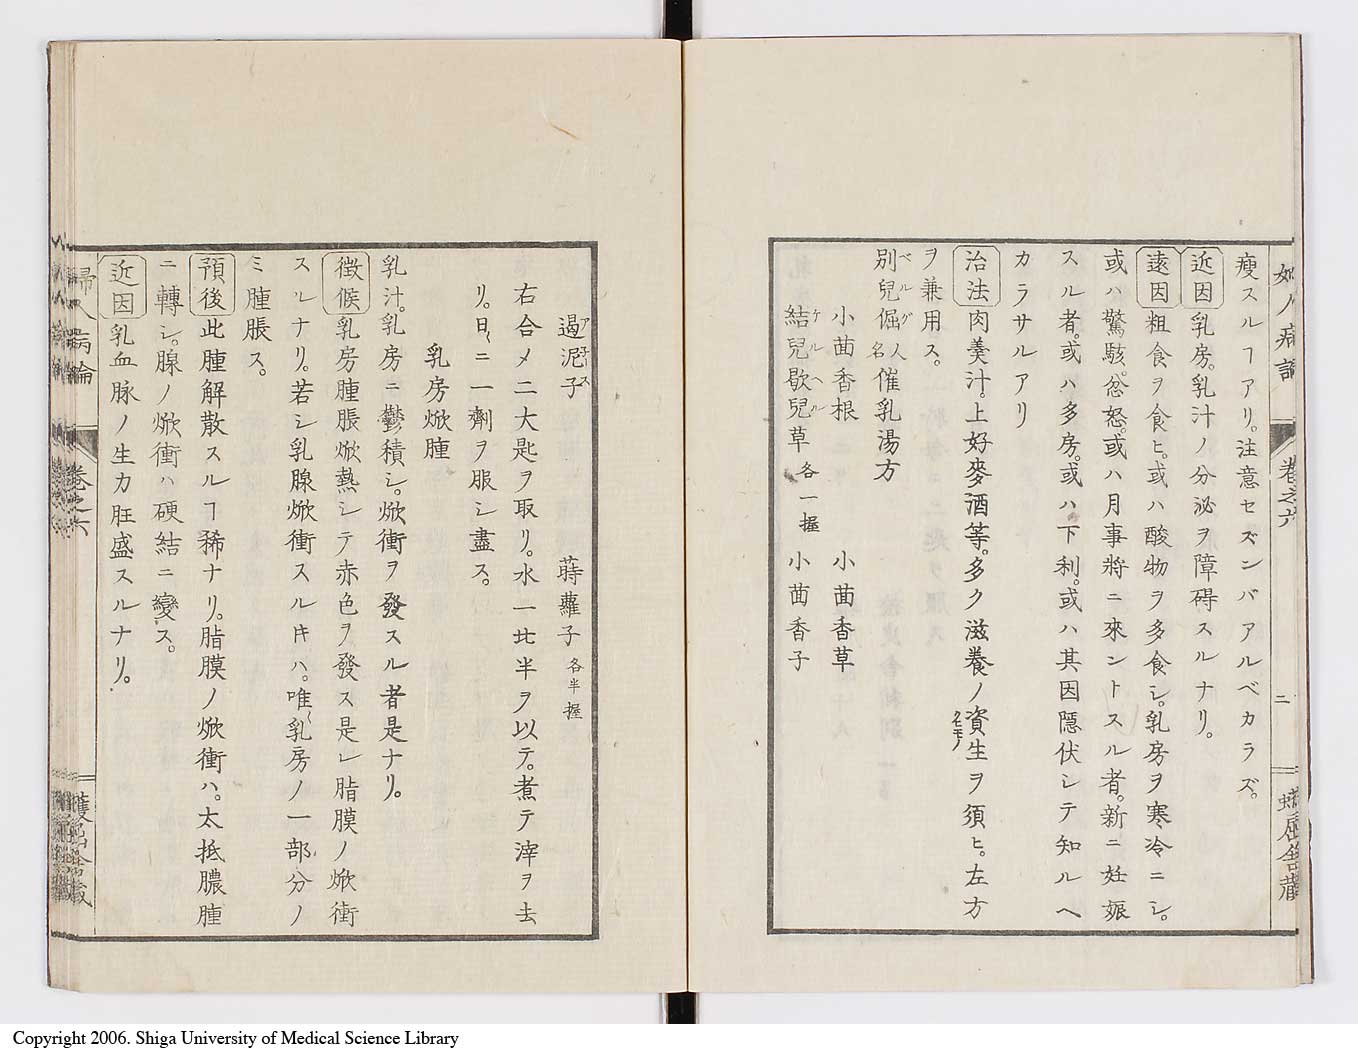 瘦スルヿアリ。注意セズンバアルベカラズ。
近因 乳房。乳汁ノ分泌ヲ障碍スルナリ。
遠因 粗食ヲ食ヒ。或ハ酸物ヲ多食シ。乳房ヲ寒冷ニシ。
或ハ驚駭。忿怒。或ハ月事將ニ來ントスル者。新ニ妊娠
スル者。或ハ多房。或ハ下利。或ハ其因隠伏シテ知ルヘ
カラサルアリ
治法 肉羹汁。上好麥酒等。多ク滋養ノ資生ヲ須ヒ。左方
ヲ兼用ス。
別兒倔人名催乳湯方
小茴香根 小茴香草
結兒歇兒草各一握 小茴香子
遏泥子 蒔蘿子各半握
右合メ二大匙ヲ取リ。水一比半ヲ以テ。煮テ滓ヲ去
リ。日ニ一劑ヲ服シ盡ス。
乳房焮腫
乳汁。乳房ニ鬱積シ。焮衝ヲ發スル者是ナリ。
徴候 乳房腫脹焮熱シテ赤色ヲ發ス是レ脂膜ノ焮衝
スルナリ。若シ乳腺焮衝スルㇳキハ。唯乳房ノ一部分ノ
ミ腫脹ス。
預後 此腫解散スルヿ稀ナリ。脂膜ノ焮衝ハ。太抵膿腫
ニ轉シ。腺ノ焮衝ハ硬結ニ變ス。
近因 乳血脉ノ生力旺盛スルナリ。
婦人病論 卷之六
Copyright 2006. Shiga University of Medical Science Library